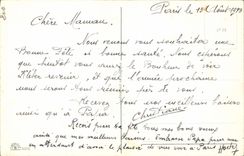 Paris le 15 Août 1979
Chère Maman
Nous venons vous souhaiter une
Bonne Fête et bonne santé, Nous espérons
que bientôt vous aurez le Bonheur de voir
revenir et que l'année prochaine
nous serons tous réunis près de vous
Recevez tous nos meilleurs baisers
ainsi qu'à Papa
Christiane
bonne fête Tous nos bons vœux
ainsi que nos meilleurs baisers Embrassez Papa pour moi
en attendant d'avoir le plaisir de vous voir à Paris